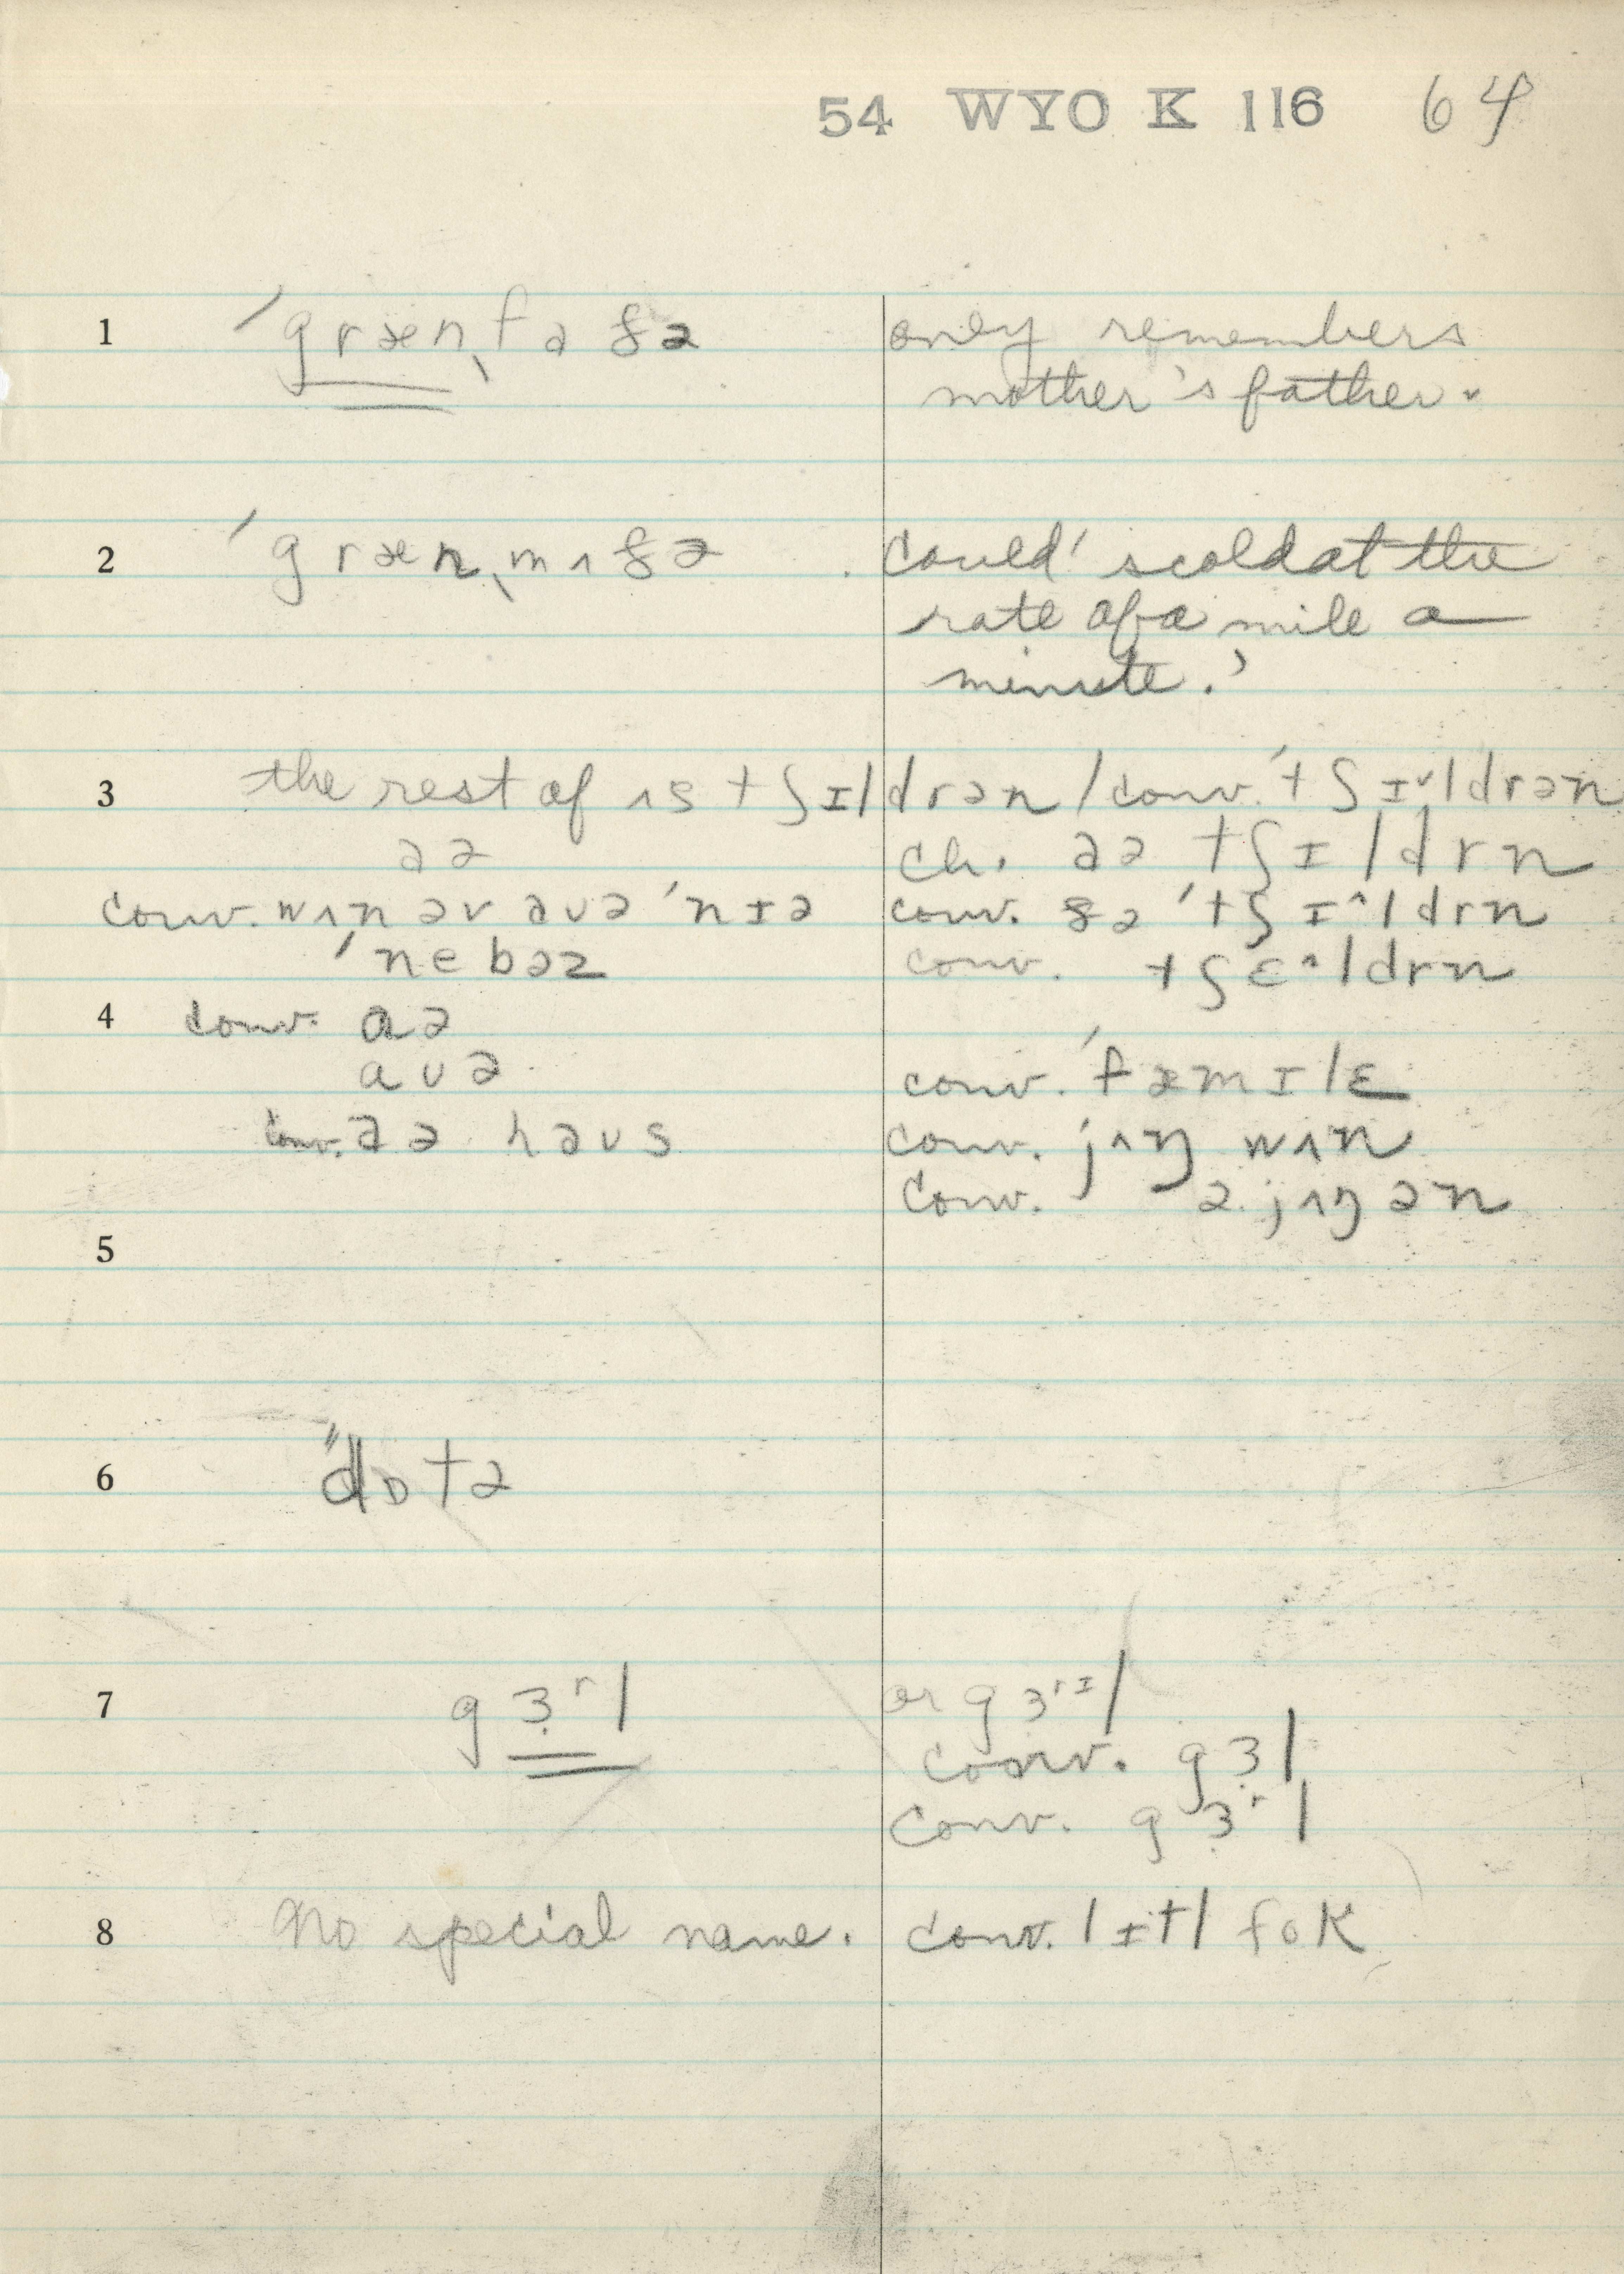 54 WYO K 116 64
1 ˈgrænˌfɑðə only remembers
mother's father.
2 ˈgrænˌmʌðə could' scold at the
rate of a mile a
minute.'
3 the rest of ʌs tʃɪldrən / conv. ˈtʃɪ˅ldrən
ɑə ch. ɑə tʃɪldrn
conv. wʌn əv ɑʊə ˈnɪə conv. ðə ˈtʃɪ^ldrn
ˈnebəz conv. tʃɛ^ldrn
4 conv. ɑə
aʊə conv. ˈfæmɪlɛ
conv. ɑə haʊs conv. jʌŋ wʌn
conv. ə jʌŋən
5
6 "dɒtə
7 gɜʳl or gɜʳᶦl
conv. gɜl
conv. gɜʳl
8 No special name. conv. lɪtl fok